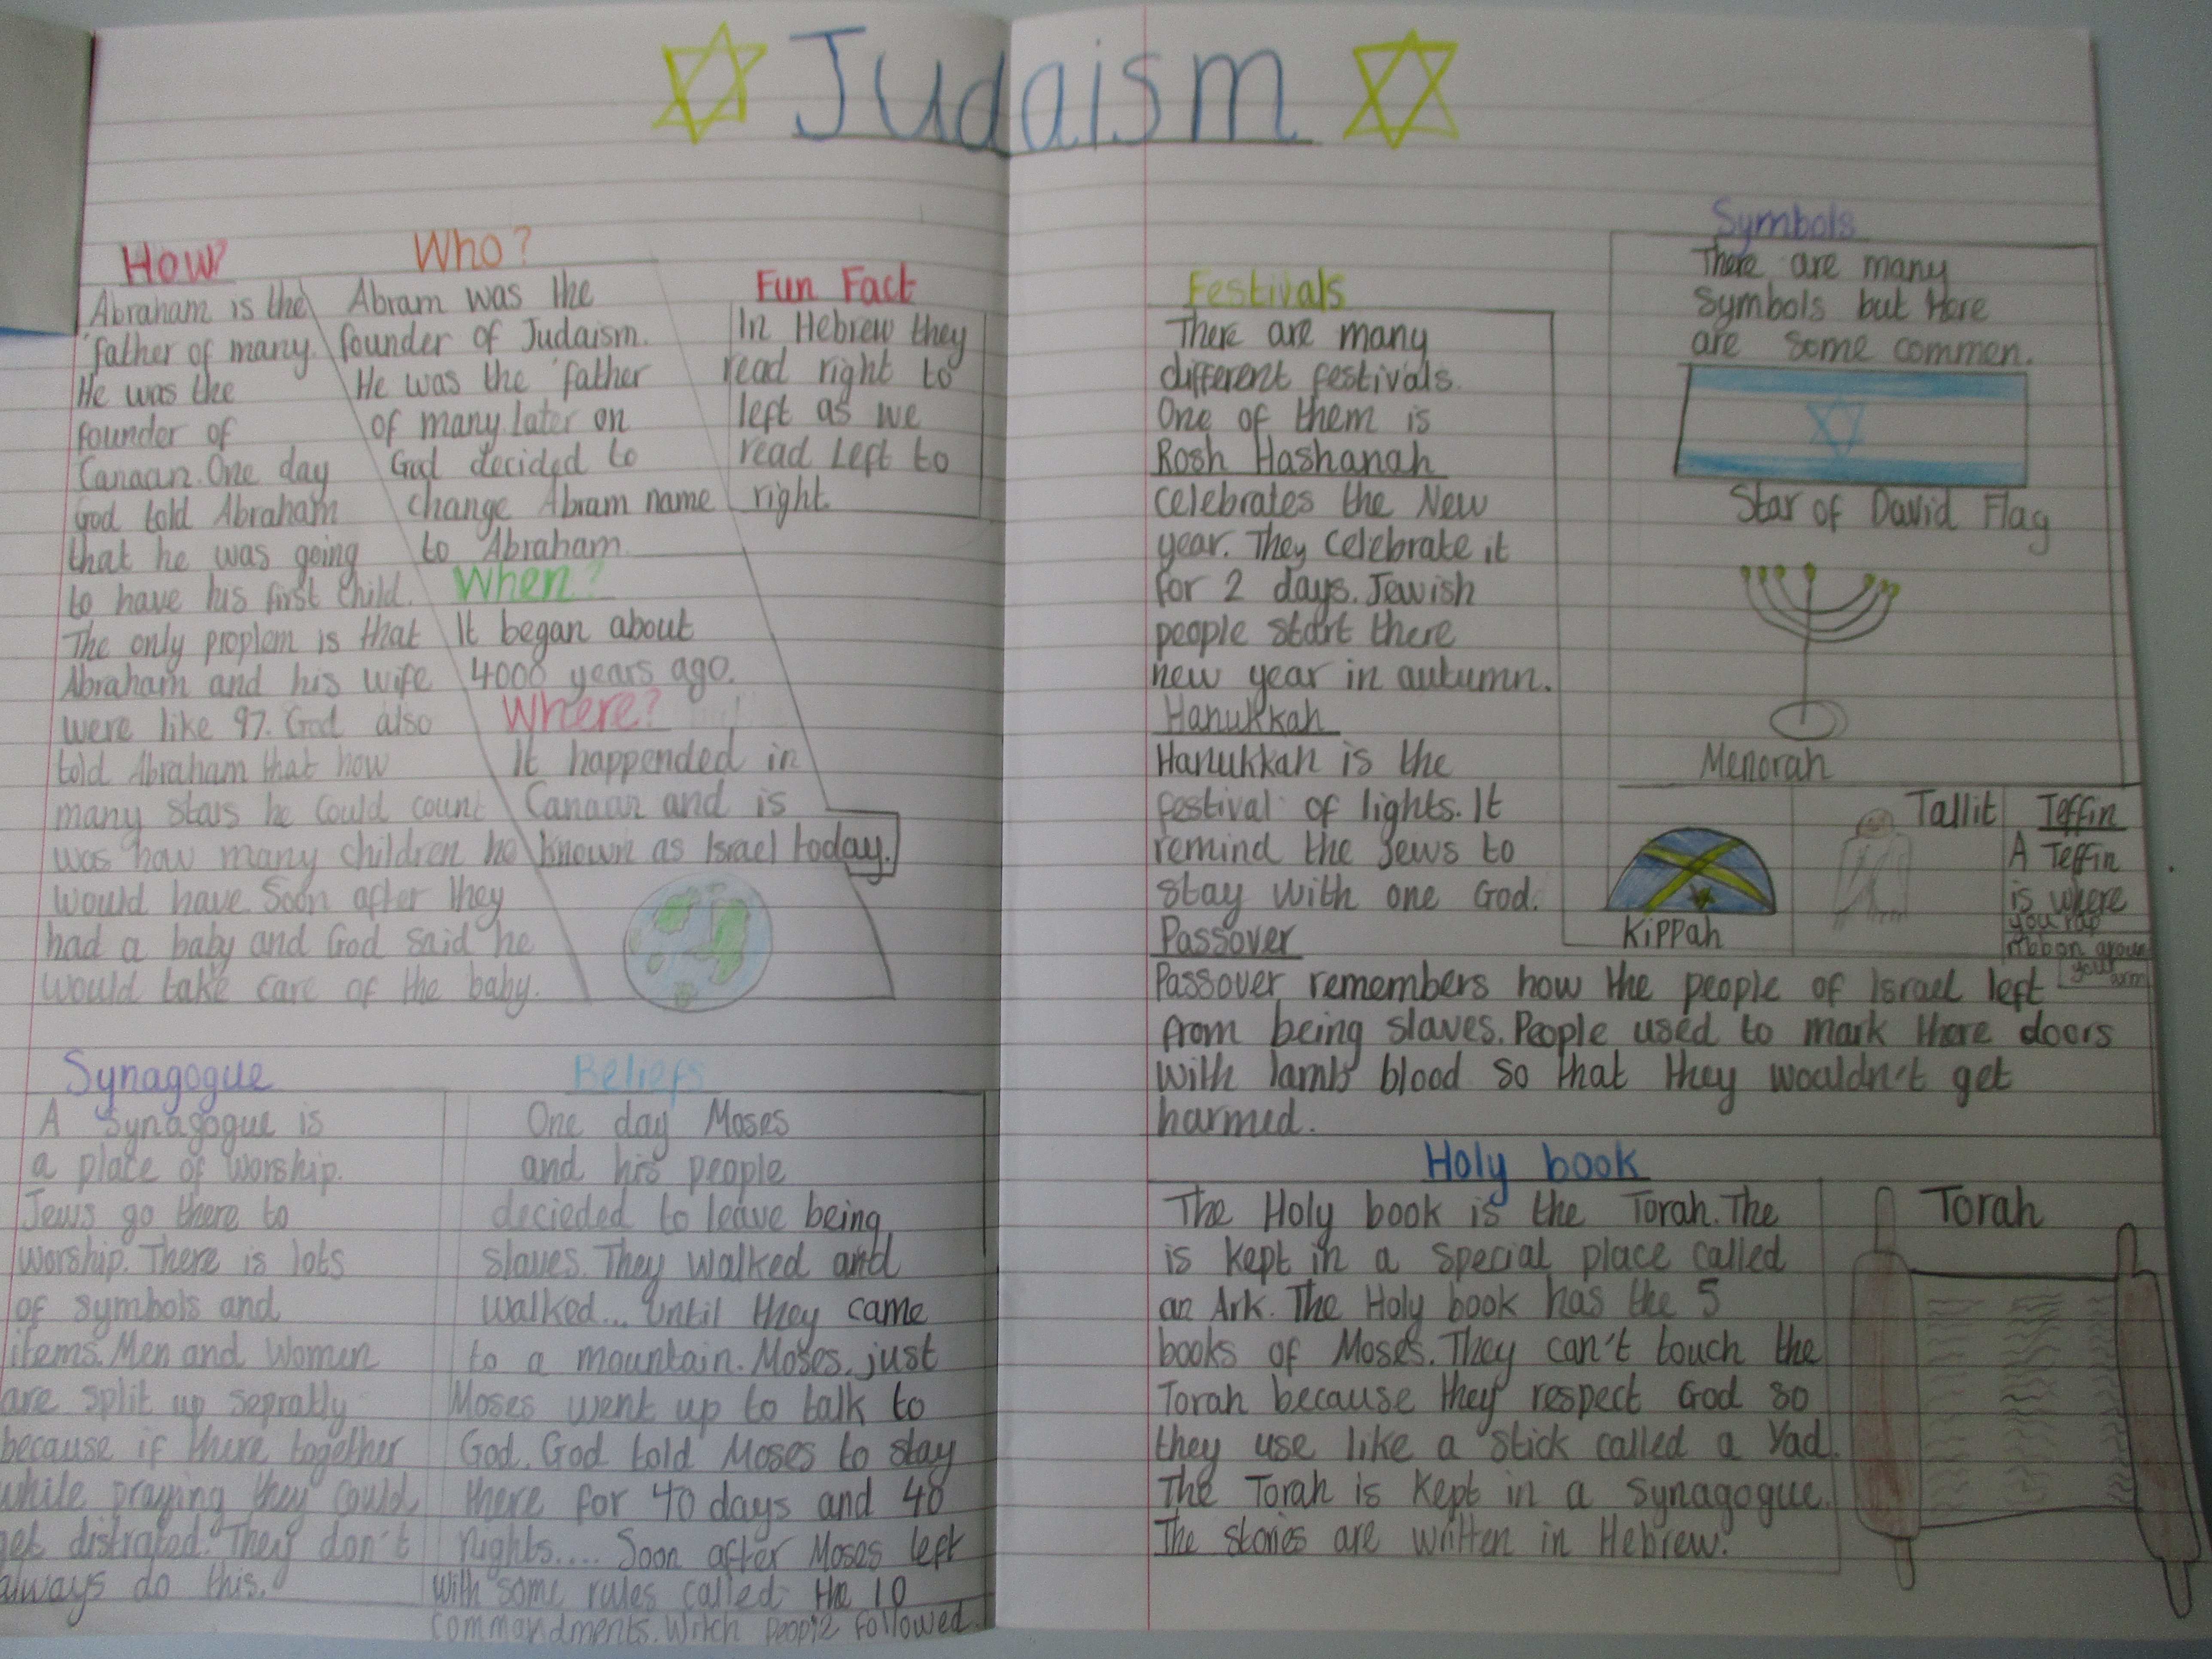 Judaism
How?
Abraham is the
father of many.
He was the
founder of
Canaan. One day
god told Abraham
that he was going
to have his first child.
The only proplem is that
Abraham and his wife
were like 97. God also
told Abraham that how
many stars he could count
was how many children he
would have. Soon after they
had a baby and God said he
would take care of the baby.
Who?
Abram was the
founder of Judaism.
He was the father
of many later on
God decided to
change Abram name
to Abraham.
When?
It began about
4000 years ago.
Where?
It happended in
Canaan and is
known as Israel today.
Fun Fact
In Hebrew they
read right to
left as we
read left to
right.
Synagogue
A synagogue is
a place of worship.
Jews go there to
worship. There is lots
of symbols and
items. Men and Women
are split up sepratly
because if there together
while praying they could
get distrated. They don't
always do this.
Beliefs
One day Moses
and his people
decieded to leave being
slaves. They walked and
walked... until they came
to a mountain. Moses, just
Moses went up to talk to
God. God told Moses to stay
there for 40 days and 40
nights.... Soon after Moses left
with some rules called the 10
commandments. Witch people followed.
Festivals
There are many
different festivals.
One of them is
Rosh Hashanah
celebrates the New
year. They celebrate it
for 2 days. Jewish
people start there
new year in autumn.
Hanukkah
Hanukkah is the
festival of lights. It
remind the Jews to
stay with one God.
Passover
Passover remembers how the people of Israel left
from being slaves. People used to mark there doors
with lambs blood so that they wouldn't get
harmed.
Symbols
There are many
symbols but here
are some commen.
Star of David Flag
Menorah
Kippah
Tallit
Teffin
A Teffin
is where
you rap
ribbon aroun
your arm
Holy book
The Holy book is the Torah. The
is kept in a special place called
an Ark. The Holy book has the 5
books of Moses. They can't touch the
Torah because they respect God so
they use like a stick called a Yad.
The Torah is kept in a synagogue.
The stories are written in Hebrew.
Torah